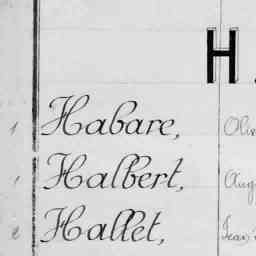 H.
1 Habare, Oliv
1 Halbert, Aug
2 Hallet, Jean